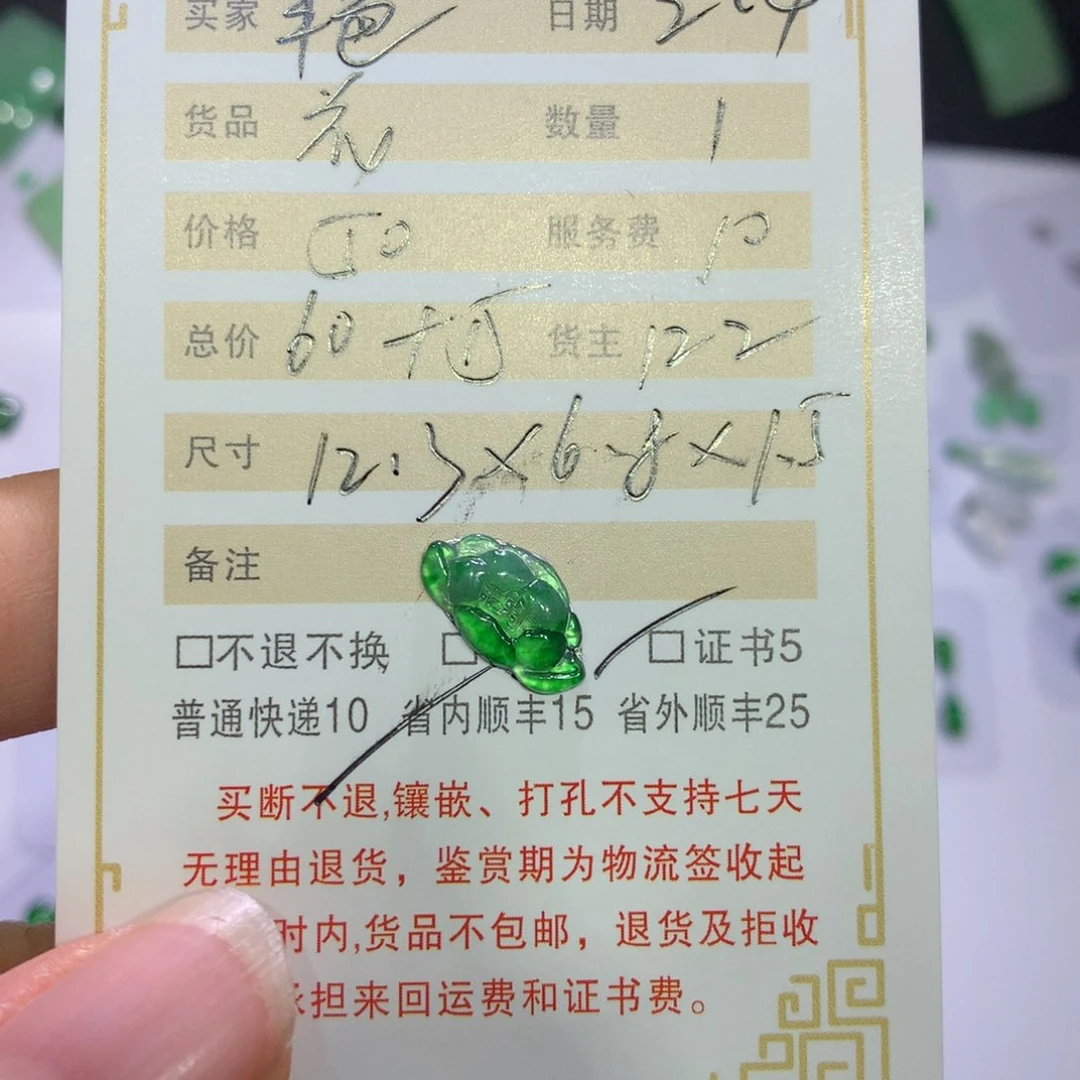 买家 艳 日期 2.4
货品 花 数量 1
价格 50 服务费 10
总价 60+15 货主 122
尺寸 12.3×6.8×1.5
备注
□不退不换 □ □证书5
普通快递10 省内顺丰15 省外顺丰25
买断不退,镶嵌、打孔不支持七天
无理由退货，鉴赏期为物流签收起
时内,货品不包邮，退货及拒收
承担来回运费和证书费。